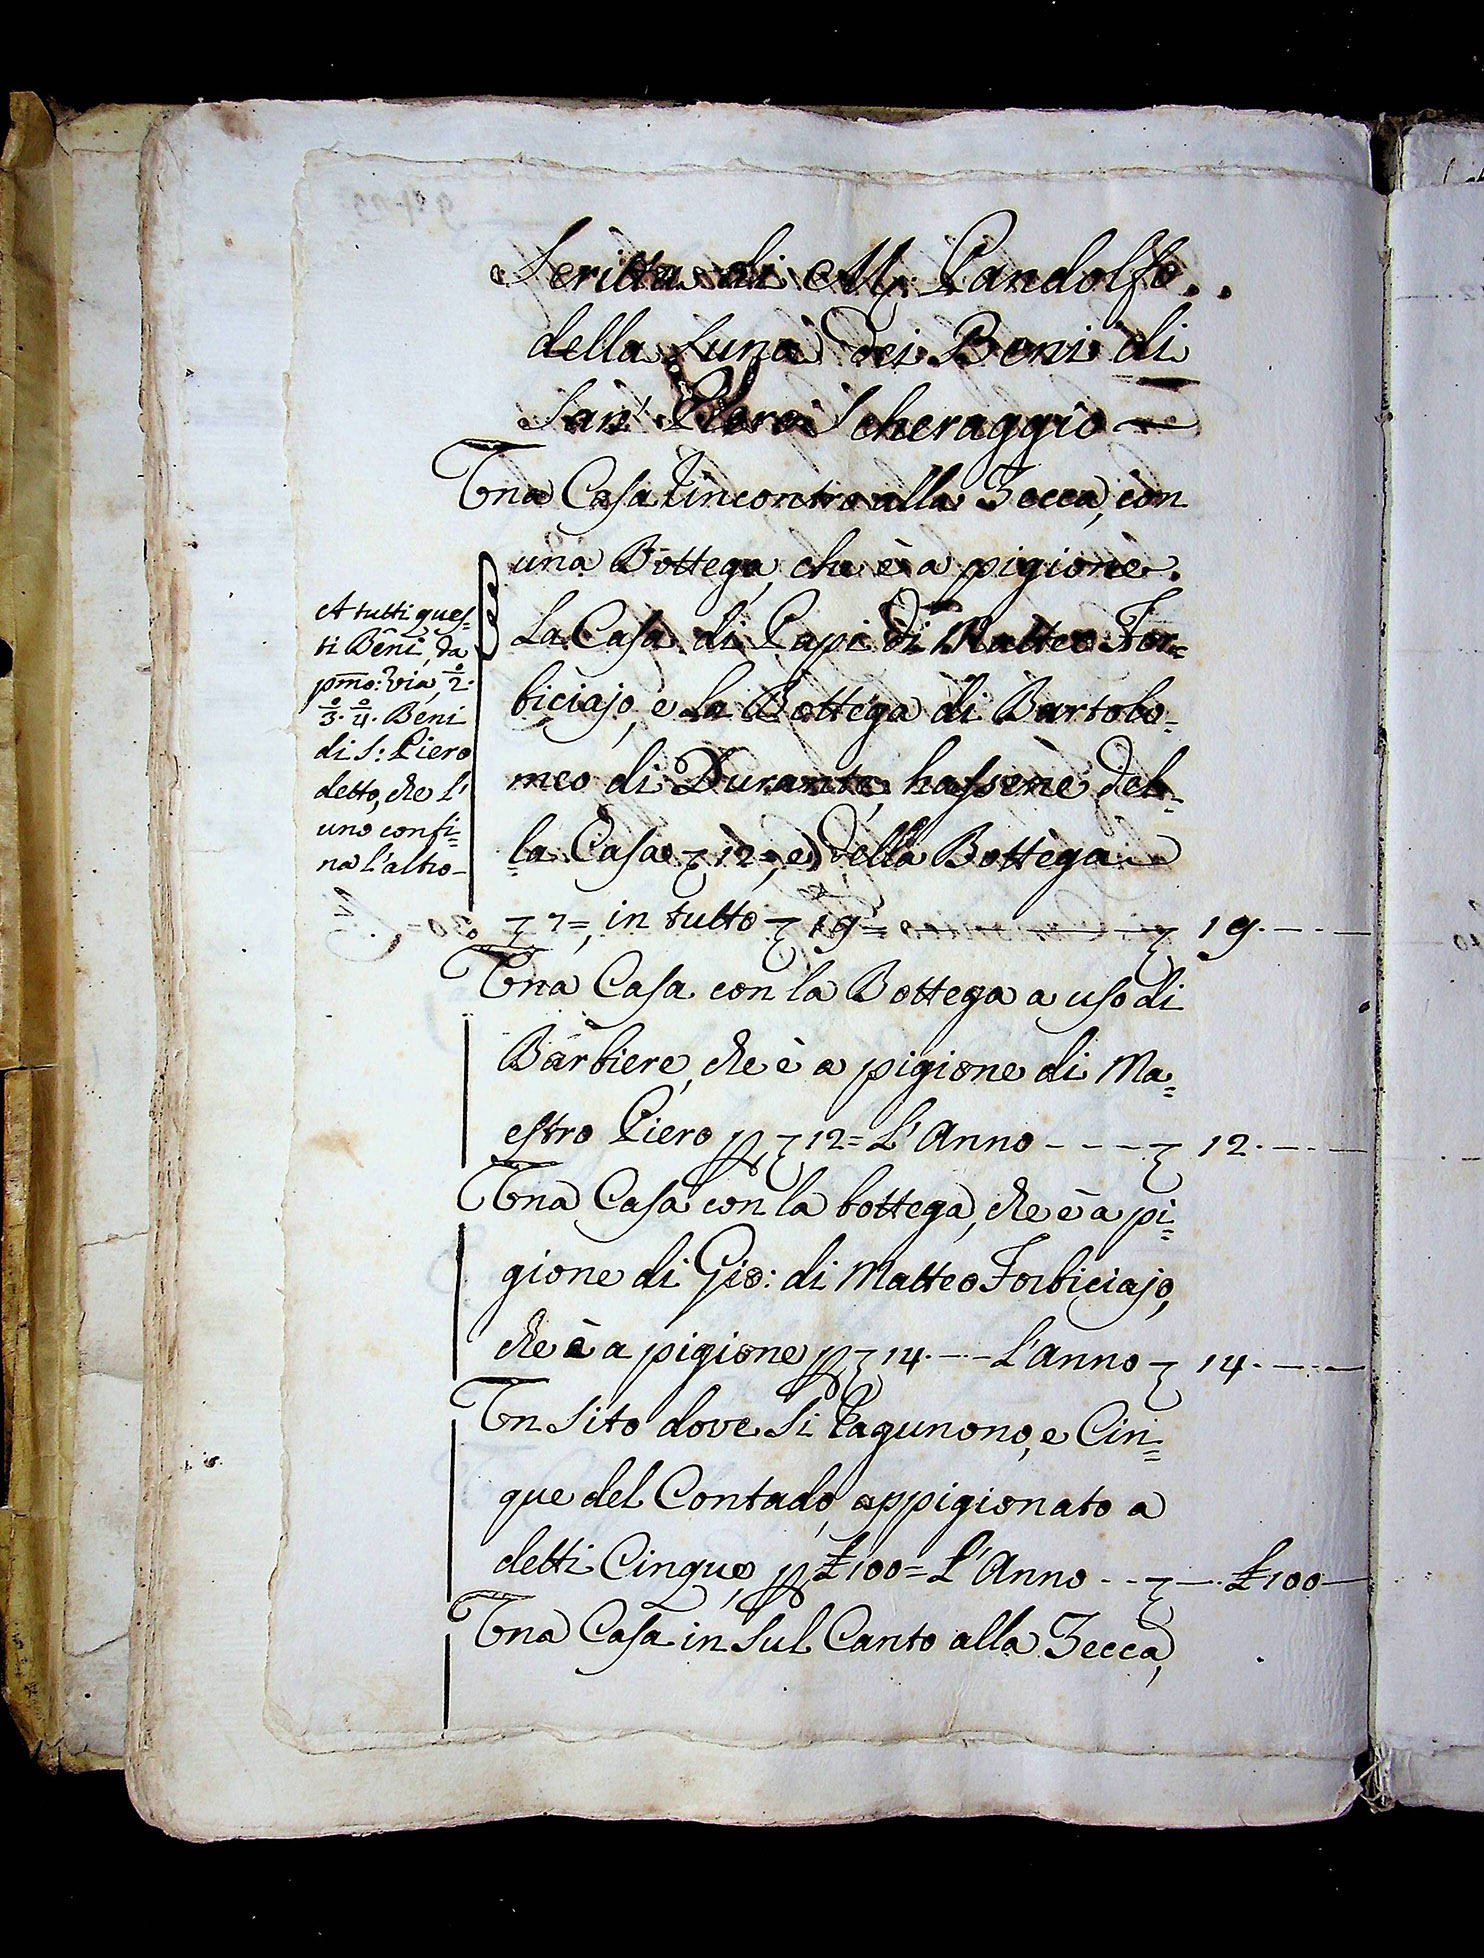 Scritta di M. Pandolfo
della Luna dei Beni di
San Piero Scheraggio
Una Casa rincontro alla Zecca, con
una Bottega, che è a pigione.
La Casa di Papi di Matteo For=
biciajo, e la Bottega di Bartolo=
meo di Durante, hassene del=
la Casa ʒ 12=, e della Bottega
ʒ 7=, in tutto ʒ 19= ʒ 19.
A tutti ques=
ti Beni, da
pmo: via, 2.
3. 4. Beni
di S: Piero
detto, che l'
uno confi=
na l'altro
Una Casa con la Bottega a uso di
Barbiere, che è a pigione di Ma=
estro Piero p ʒ 12= L'Anno - - - ʒ 12.
Una Casa con la bottega, che è a pi=
gione di Gio: di Matteo Forbiciajo,
che è a pigione p ʒ 14. L'anno ʒ 14.
Un Sito dove Si Ragunono, e Cin=
que del Contado, appigionato a
detti Cinque, p £ 100= L'Anno - - ʒ £ 100
Una Casa in Sul Canto alla Zecca,